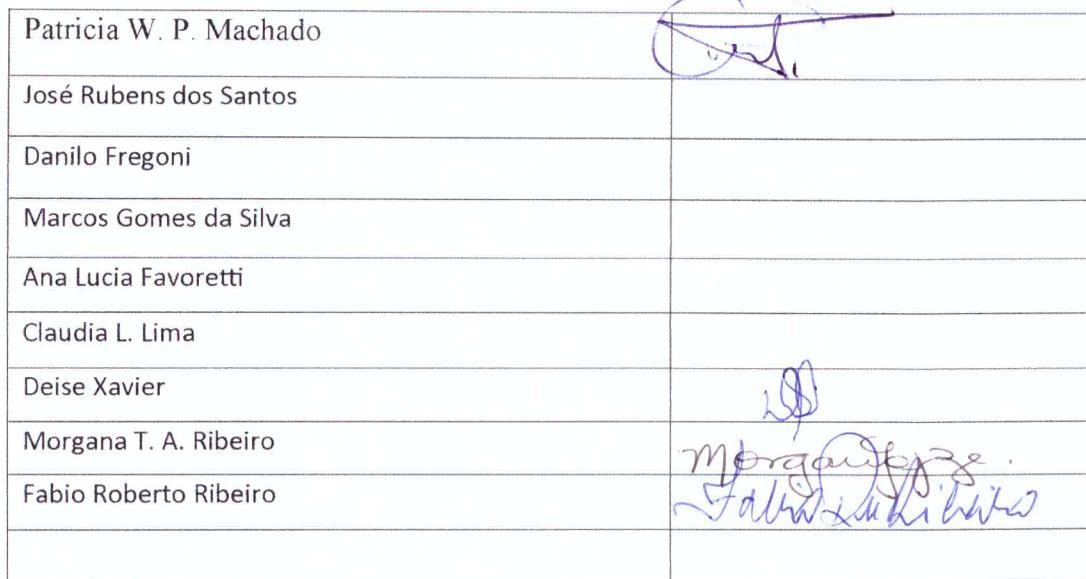 Patricia W. P. Machado
José Rubens dos Santos
Danilo Fregoni
Marcos Gomes da Silva
Ana Lucia Favoretti
Claudia L. Lima
Deise Xavier
Morgana T. A. Ribeiro
Fabio Roberto Ribeiro